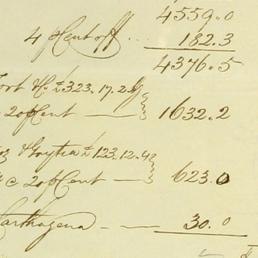 4559.0
4 pCent off ... 182.3
4376.5
£323.17.2
20pCent — 1632.2
£123.12.4
20pCent — 623.0
Carthagena — — 30.0